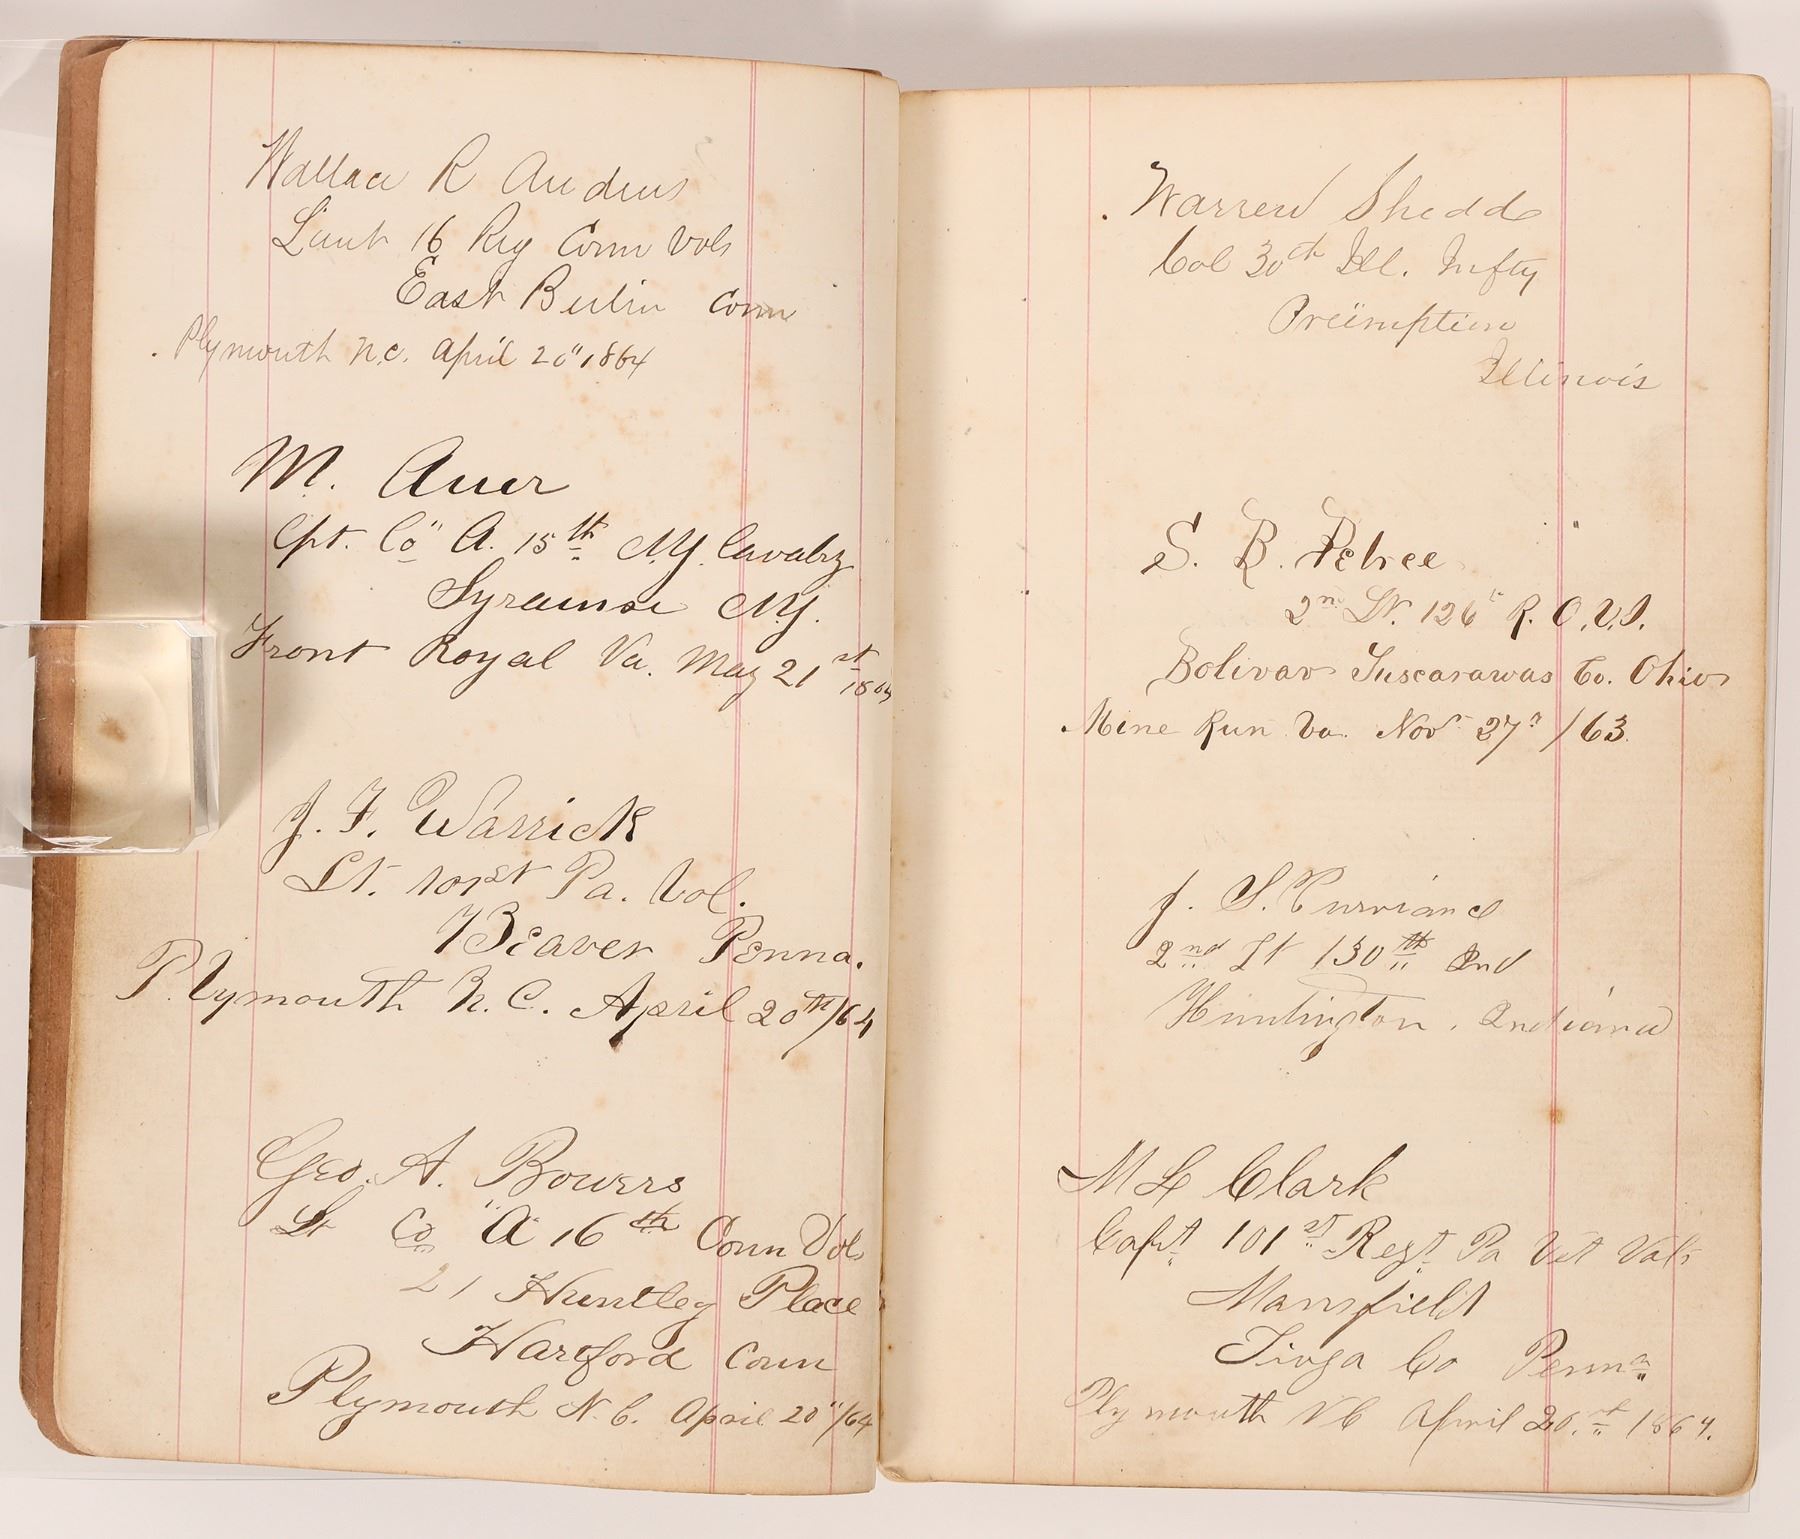 Wallace R Andrews
Lieut 16 Reg Conn Vols
East Berlin Conn
Plymouth N.C. April 20" 1864
M. Auer
Cpt. Co" A. 15th N.Y. Cavalry
Syracuse N.Y.
Front Royal Va. May 21st 1864
J. F. Warrick
Lt. 101st Pa. Vol.
Beaver Penna.
Plymouth N. C. April 20th/64
Geo. A. Bowers
Lt Co "A" 16th Conn Vols
21 Huntley Place
Hartford Conn
Plymouth N. C. April 20"/64
Warren Shedd
Col 30th Ill. Infty
Preemption
Illinois
S. B. Petree
2n Lt. 126" R. O. V. I.
Bolivar Tuscarawas Co. Ohio
Mine Run Va. Nov 27" /63.
J. S. Purviance
2nd Lt 130th Ind
Huntington, Indiana
M L Clark
Capt 101st Regt Pa Vet Vols
Mansfield
Tioga Co Penna
Plymouth N C April 20.st 1864.